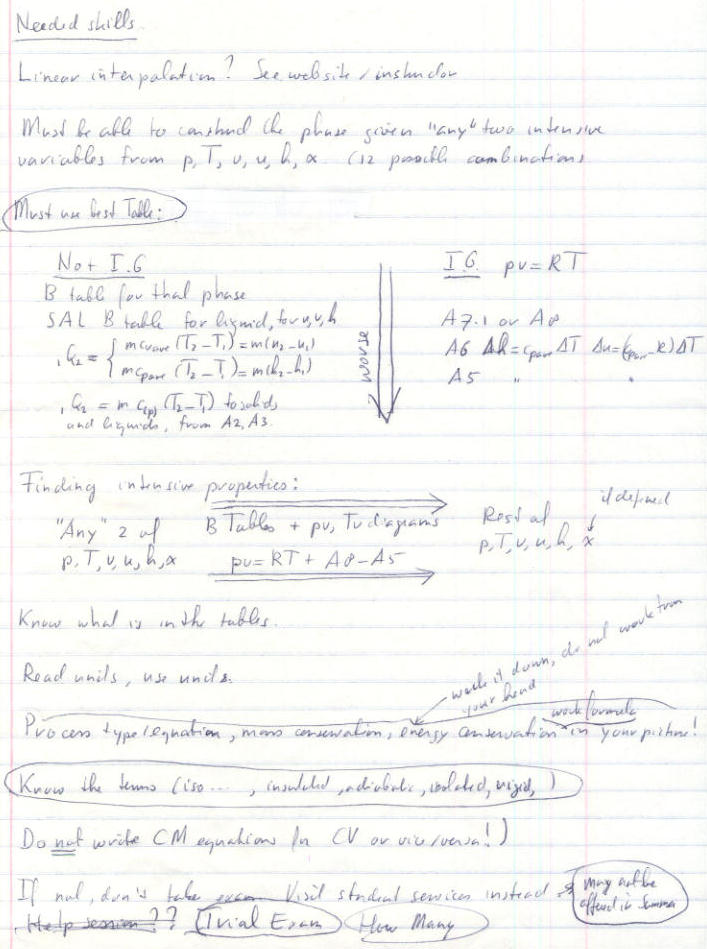 Needed skills
Linear interpolation? See website / instructor
Must be able to construct the phase given "any" two intensive
variables from p, T, v, u, h, x (12 possible combinations
Must use best Table:
Not I.G
B table for that phase
SAL B table for liquid, for v, u, h
1Q2 = { m cvave (T2 - T1) = m(u2 - u1)
m cpave (T2 - T1) = m(h2 - h1)
1Q2 = m c(p) (T2 - T1) for solids
and liquids, from A2, A3.
worse
I.G. pv = RT
A7.1 or A8
A6 Δh = cpave ΔT Δu = (cpave - R) ΔT
A5 " "
Finding intensive properties:
"Any" 2 of
p, T, v, u, h, x
B Tables + pv, Tv diagrams
pv = RT + A8 - A5
if defined
Rest of
p, T, v, u, h, x
Know what is in the tables.
Read units, use units.
write it down, do not work from
your head
work formula
Process type/equation, mass conservation, energy conservation in your picture!
Know the terms (iso ... , insulated, adiabatic, isolated, rigid, )
Do not write CM equations for CV or vice versa!)
If not, don't take exam Visit student services instead
may not be
offered in summer
Help session?? Trial Exam How Many